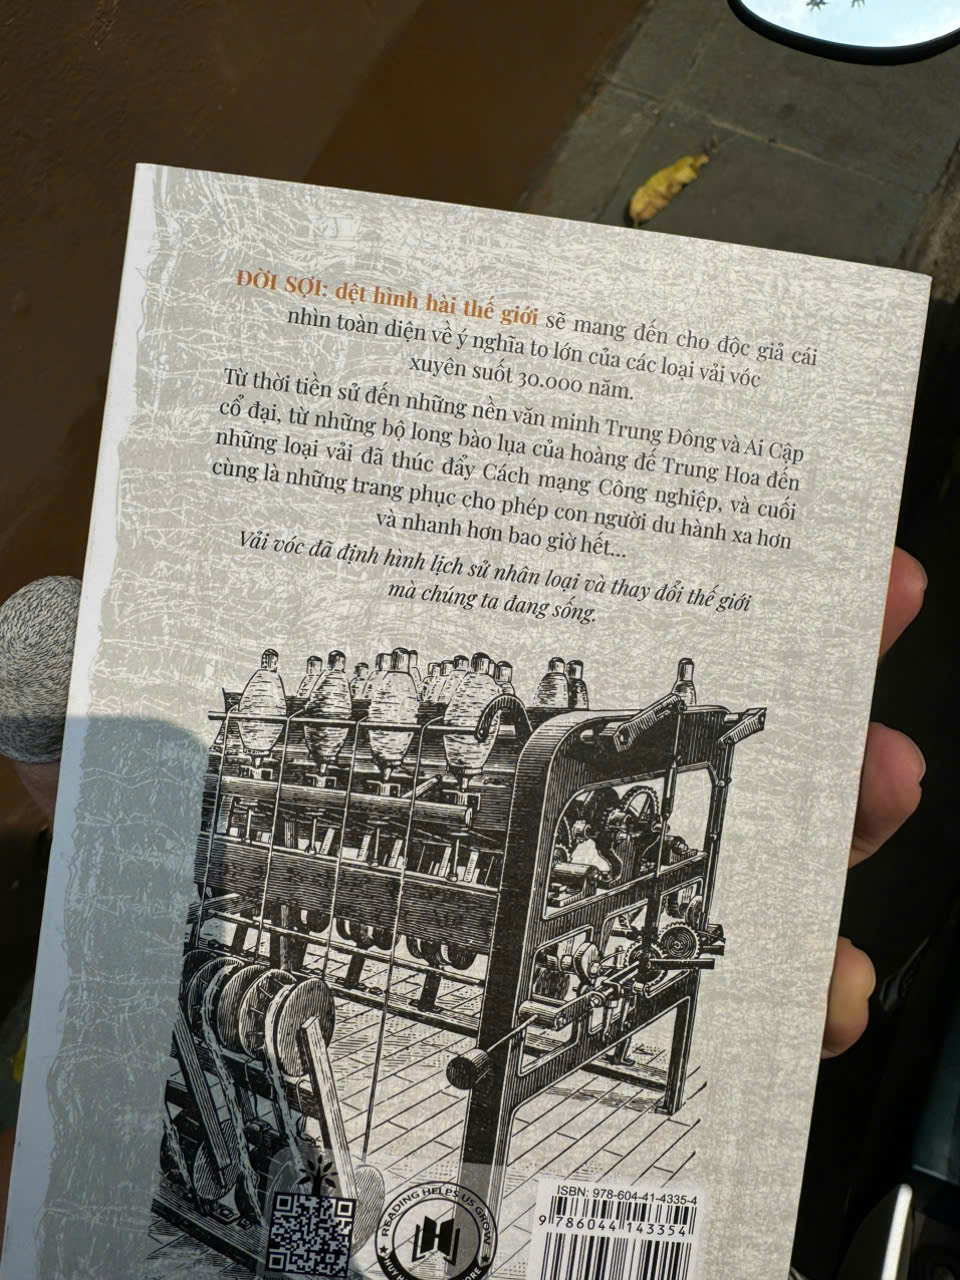 ĐỜI SỢI: dệt hình hài thế giới sẽ mang đến cho độc giả cái
nhìn toàn diện về ý nghĩa to lớn của các loại vải vóc
xuyên suốt 30.000 năm.
Từ thời tiền sử đến những nền văn minh Trung Đông và Ai Cập
cổ đại, từ những bộ long bào lụa của hoàng đế Trung Hoa đến
những loại vải đã thúc đẩy Cách mạng Công nghiệp, và cuối
cùng là những trang phục cho phép con người du hành xa hơn
và nhanh hơn bao giờ hết...
Vải vóc đã định hình lịch sử nhân loại và thay đổi thế giới
mà chúng ta đang sống.
READING HELPS US GROW
ISBN: 978-604-41-4335-4
9 786044 143354